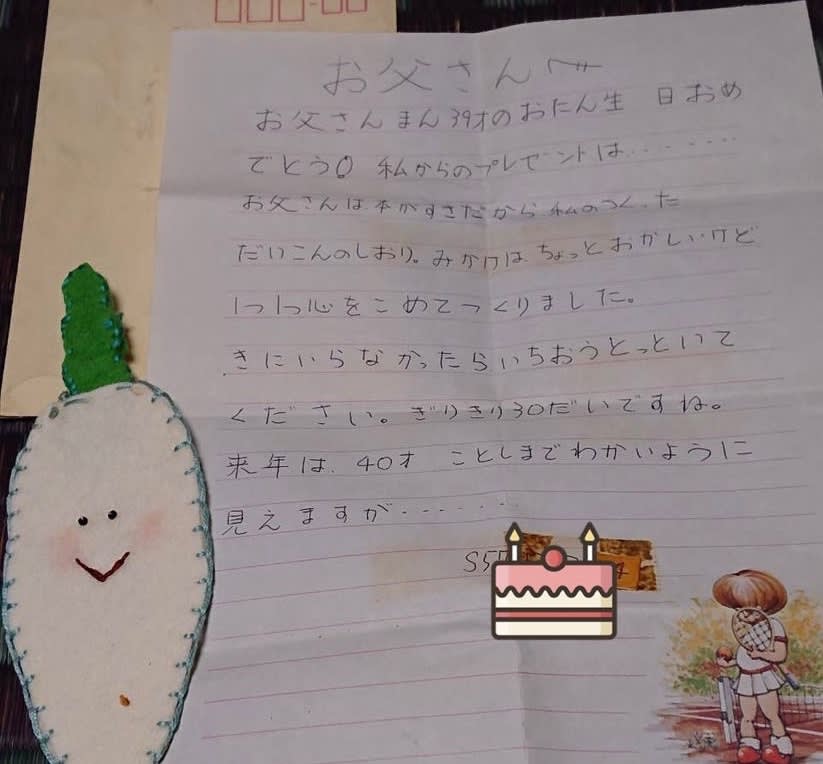 お父さんへ
お父さんまん39才のおたん生 日おめ
でとう! 私からのプレゼントは........
お父さんは本がすきだから私のつくった
だいこんのしおり。みかけはちょっとおかしいけど
1つ1つ心をこめてつくりました。
きにいらなかったらいちおうとっといて
ください。ぎりぎり30だいですね。
来年は、40才 ことしまでわかいように
見えますが・・・・・・・